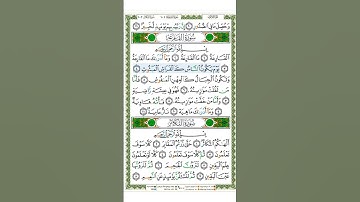 وَحُصِّلَ مَا فِي ٱلصُّدُورِ إِنَّ رَبَّهُم بِهِمْ يَوْمَئِذٍ لَّخَبِيرٌ
سُورَةُ القَارِعَةِ
بِسْمِ ٱللَّهِ ٱلرَّحْمَٰنِ ٱلرَّحِيمِ
ٱلْقَارِعَةُ مَا ٱلْقَارِعَةُ وَمَآ أَدْرَىٰكَ مَا ٱلْقَارِعَةُ
يَوْمَ يَكُونُ ٱلنَّاسُ كَٱلْفَرَاشِ ٱلْمَبْثُوثِ
وَتَكُونُ ٱلْجِبَالُ كَٱلْعِهْنِ ٱلْمَنفُوشِ
فَأَمَّا مَن ثَقُلَتْ مَوَٰزِينُهُۥ فَهُوَ فِي عِيشَةٍ رَّاضِيَةٍ
وَأَمَّا مَنْ خَفَّتْ مَوَٰزِينُهُۥ فَأُمُّهُۥ هَاوِيَةٌ
وَمَآ أَدْرَىٰكَ مَا هِيَهْ نَارٌ حَامِيَةٌ
سُورَةُ التَّكَاثُرِ
بِسْمِ ٱللَّهِ ٱلرَّحْمَٰنِ ٱلرَّحِيمِ
أَلْهَىٰكُمُ ٱلتَّكَاثُرُ حَتَّىٰ زُرْتُمُ ٱلْمَقَابِرَ كَلَّا سَوْفَ
تَعْلَمُونَ ثُمَّ كَلَّا سَوْفَ تَعْلَمُونَ كَلَّا لَوْ تَعْلَمُونَ
عِلْمَ ٱلْيَقِينِ لَتَرَوُنَّ ٱلْجَحِيمَ ثُمَّ لَتَرَوُنَّهَا
عَيْنَ ٱلْيَقِينِ ثُمَّ لَتُسْـَٔلُنَّ يَوْمَئِذٍ عَنِ ٱلنَّعِيمِ